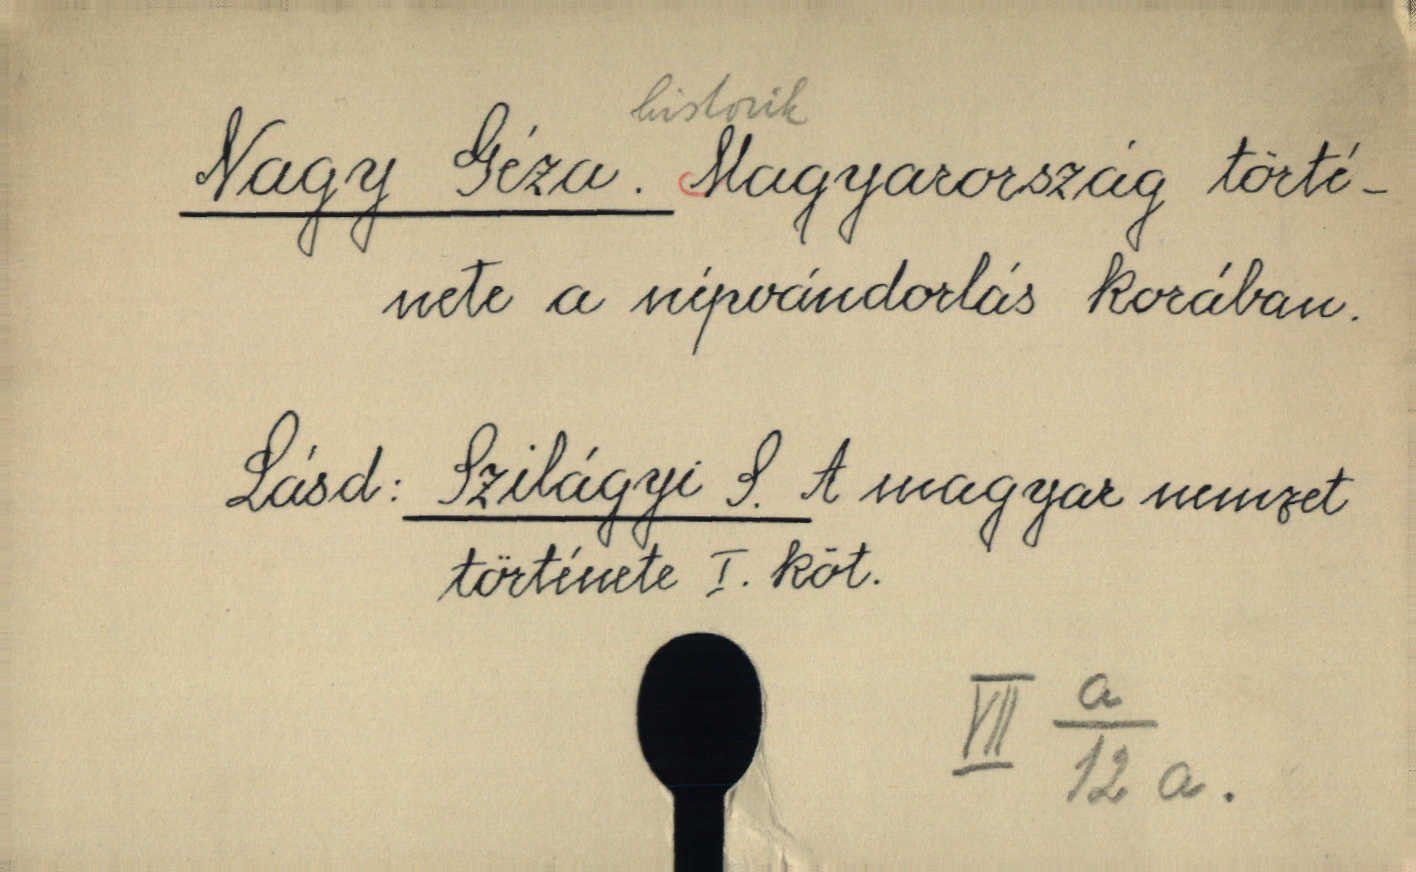 historik
Nagy Géza. Magyarország törté-
nete a népvándorlás korában.
Lásd: Szilágyi S. A magyar nemzet
története I. köt.
VII a/12 a.